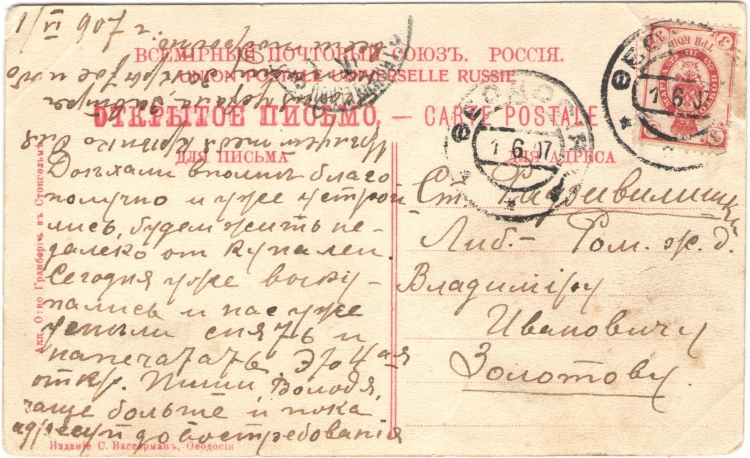 1/VI 907 г.
ВСЕМІРНЫЙ ПОЧТОВЫЙ СОЮЗЪ. РОССІЯ.
UNION POSTALE UNIVERSELLE RUSSIE
ОТКРЫТОЕ ПИСЬМО. — CARTE POSTALE
ДЛЯ ПИСЬМА
ДЛЯ АДРЕСА
Доѣхали вполнѣ благо
получно и уже устрои
лись, будем жить не-
далеко от купален.
Сегодня уже выку-
пались и нас уже
успѣли снять и
напечатать. Это
откр. Пиши, Володя,
чаще больше и пока
адресуй до востребованія
Ст. Радзивилишки
Либ.- Ром. ж. д.
Владиміру
Ивановичу
Золотову.
Акц. О-во Гранбергъ, въ Стокгольмѣ.
Изданіе С. Вассерманъ, Ѳеодосія
ТРИ КОП.
3
ѲЕОДОСІЯ
1.6.07
1.6.07